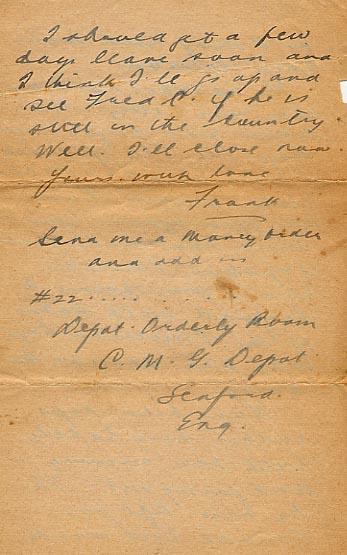 I should get a few
days leave soon and
I think I'll go up and
see Fred C. if he is
still in the Country.
Well. I'll close now.
Yours with love
Frank
Send me a money order
and add is
#22 . . . . . . . . .
Depot Orderly Room
C. M. G. Depot.
Seaford.
Eng.